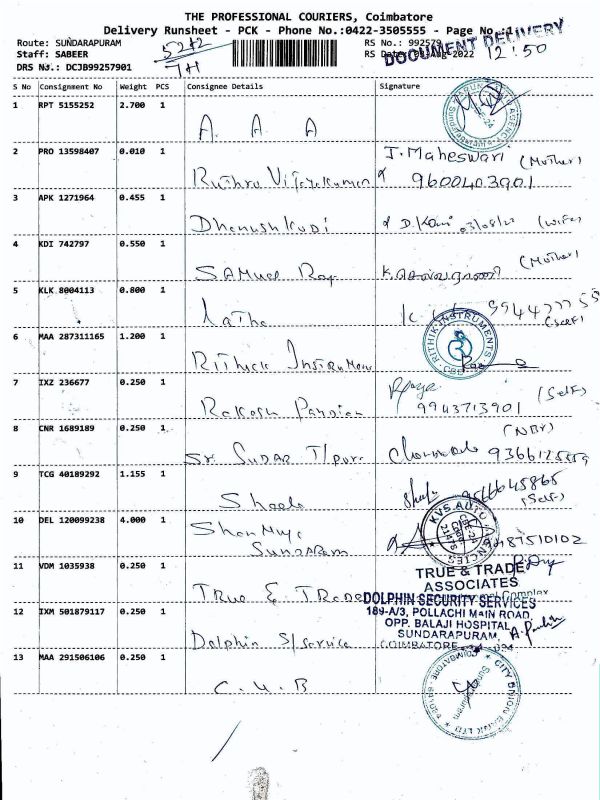 THE PROFESSIONAL COURIERS, Coimbatore
Delivery Runsheet - PCK - Phone No.:0422-3505555 - Page No.:1
DOCUMENT DELIVERY
Route: SUNDARAPURAM
RS No.: 992579
12:50
Staff: SABEER
RS Date: Aug-2022
DRS No.: DCJB99257901
S No Consignment No Weight PCS Consignee Details Signature
1 RPT 5155252 2.700 1
A. A A
2 PRO 13598407 0.010 1
J. Maheswari (Mother)
Ruthra Vijayakumar 9600403901
3 APK 1271964 0.455 1
Dhanushkudi D. Kani 03/08/22 (wife)
4 KDI 742797 0.550 1
(Mother)
Samuel Raj
5 KLK 8004113 0.800 1
Latha
(Self)
6 MAA 287311165 1.200 1
RITHIK INSTRUMENTS
CBE
Rithick Instrumen
7 IXZ 236677 0.250 1
(Self)
Rakesh Pandian 9943713901
8 CNR 1689189 0.250 1
(NBr)
Sr. Sudar T/pur
9 TCG 40189292 1.155 1
Sheela 9566645865
(Self)
10 DEL 120099238 4.000 1
KVS AUTO AGENCIES
Shanmuga
Sundaram
11 VDM 1035938 0.250 1
TRUE & TRADE
ASSOCIATES
True & Trade
12 IXM 501879117 0.250 1
DOLPHIN SECURITY SERVICES
189-A/3, POLLACHI MAIN ROAD,
OPP. BALAJI HOSPITAL
SUNDARAPURAM,
COIMBATORE
Dolphin S/service
13 MAA 291506106 0.250 1
C U B
CITY UNION BANK LTD
COIMBATORE
Sundarapuram